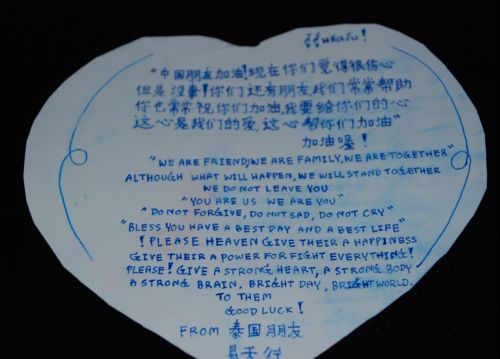 "中国朋友加油!现在你们觉得很伤心
但是没事!你们还有朋友,我们常常帮助
你也常常祝你们加油,我要给你们的心
这心是我们的爱,这心帮你们加油"
加油喔!
"WE ARE FRIEND,WE ARE FAMILY,WE ARE TOGETHER"
ALTHOUGH WHAT WILL HAPPEN, WE WILL STAND TOGETHER
WE DO NOT LEAVE YOU
"YOU ARE US WE ARE YOU"
"DO NOT FORGIVE, DO NOT SAD, DO NOT CRY"
"BLESS YOU HAVE A BEST DAY AND A BEST LIFE"
! PLEASE HEAVEN GIVE THEIR A HAPPINESS
GIVE THEIR A POWER FOR FIGHT EVERYTHING!
PLEASE! GIVE A STRONG HEART, A STRONG BODY
A STRONG BRAIN, BRIGHT DAY, BRIGHT WORLD.
TO THEM
GOOD LUCK!
FROM 泰国朋友